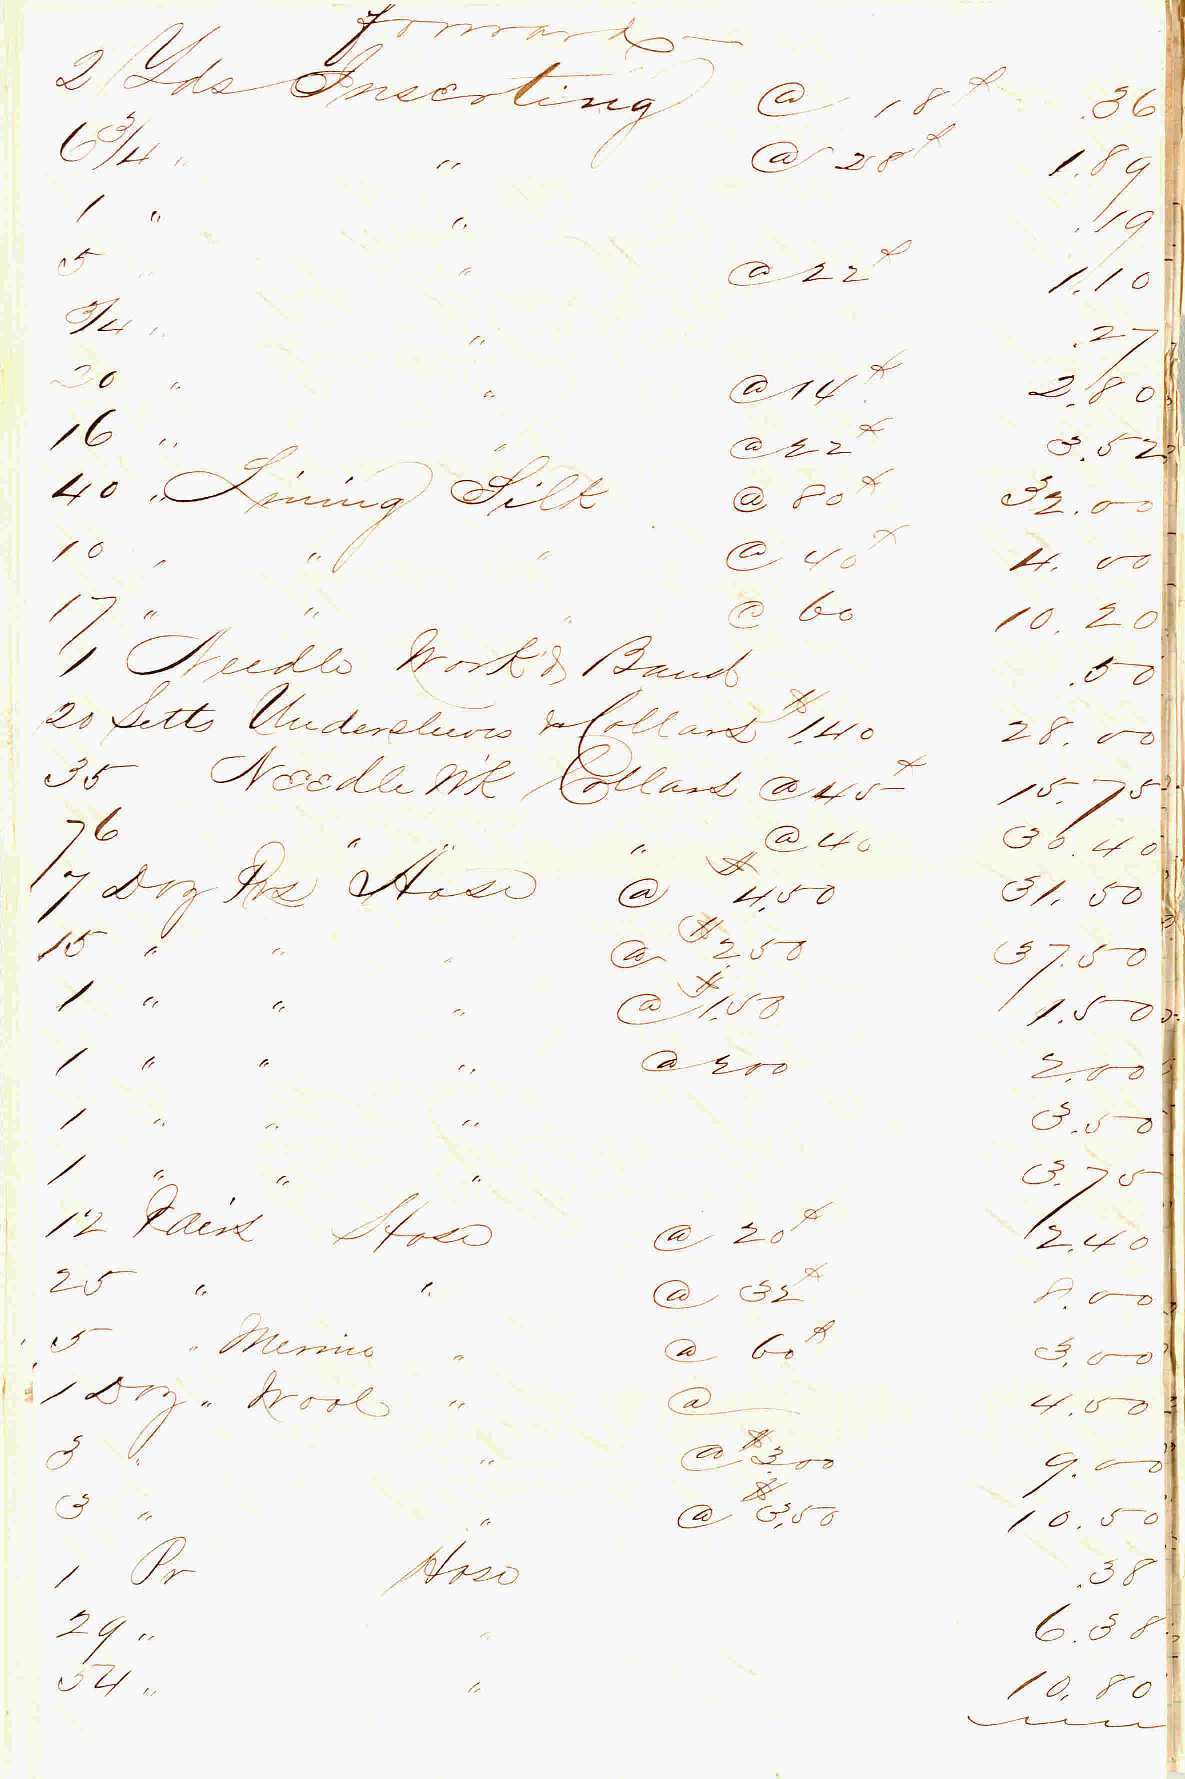 forward
2 Yds Inserting @ 18¢ .36
6 3/4 " " @ 28¢ 1.89
1 " " .19
5 " " @ 22¢ 1.10
3/4 " " .27
20 " " @ 14¢ 2.80
16 " " @ 22¢ 3.52
40 " Lining Silk @ 80¢ 32.00
10 " " " @ 40¢ 4.00
17 " " " @ 60 10.20
1 Needle Work'd Band .50
20 Setts Undersleeves & Collars $1.40 28.00
35 Needle Wk Collars @ 45¢ 15.75
76 " " " @ 40 30.40
7 Doz Prs Hose @ $4.50 31.50
15 " " " @ $2.50 37.50
1 " " " @ $1.50 1.50
1 " " " @ 200 2.00
1 " " " 3.50
1 " " " 3.75
12 Pairs Hose @ 20¢ 2.40
25 " " @ 32¢ 8.00
5 " Merino " @ 60¢ 3.00
1 Doz " Wool " @ 4.50
3 " " @ $3.00 9.00
3 " " @ $3.50 10.50
1 Pr Hose .38
29 " " 6.38
54 " " 10.80